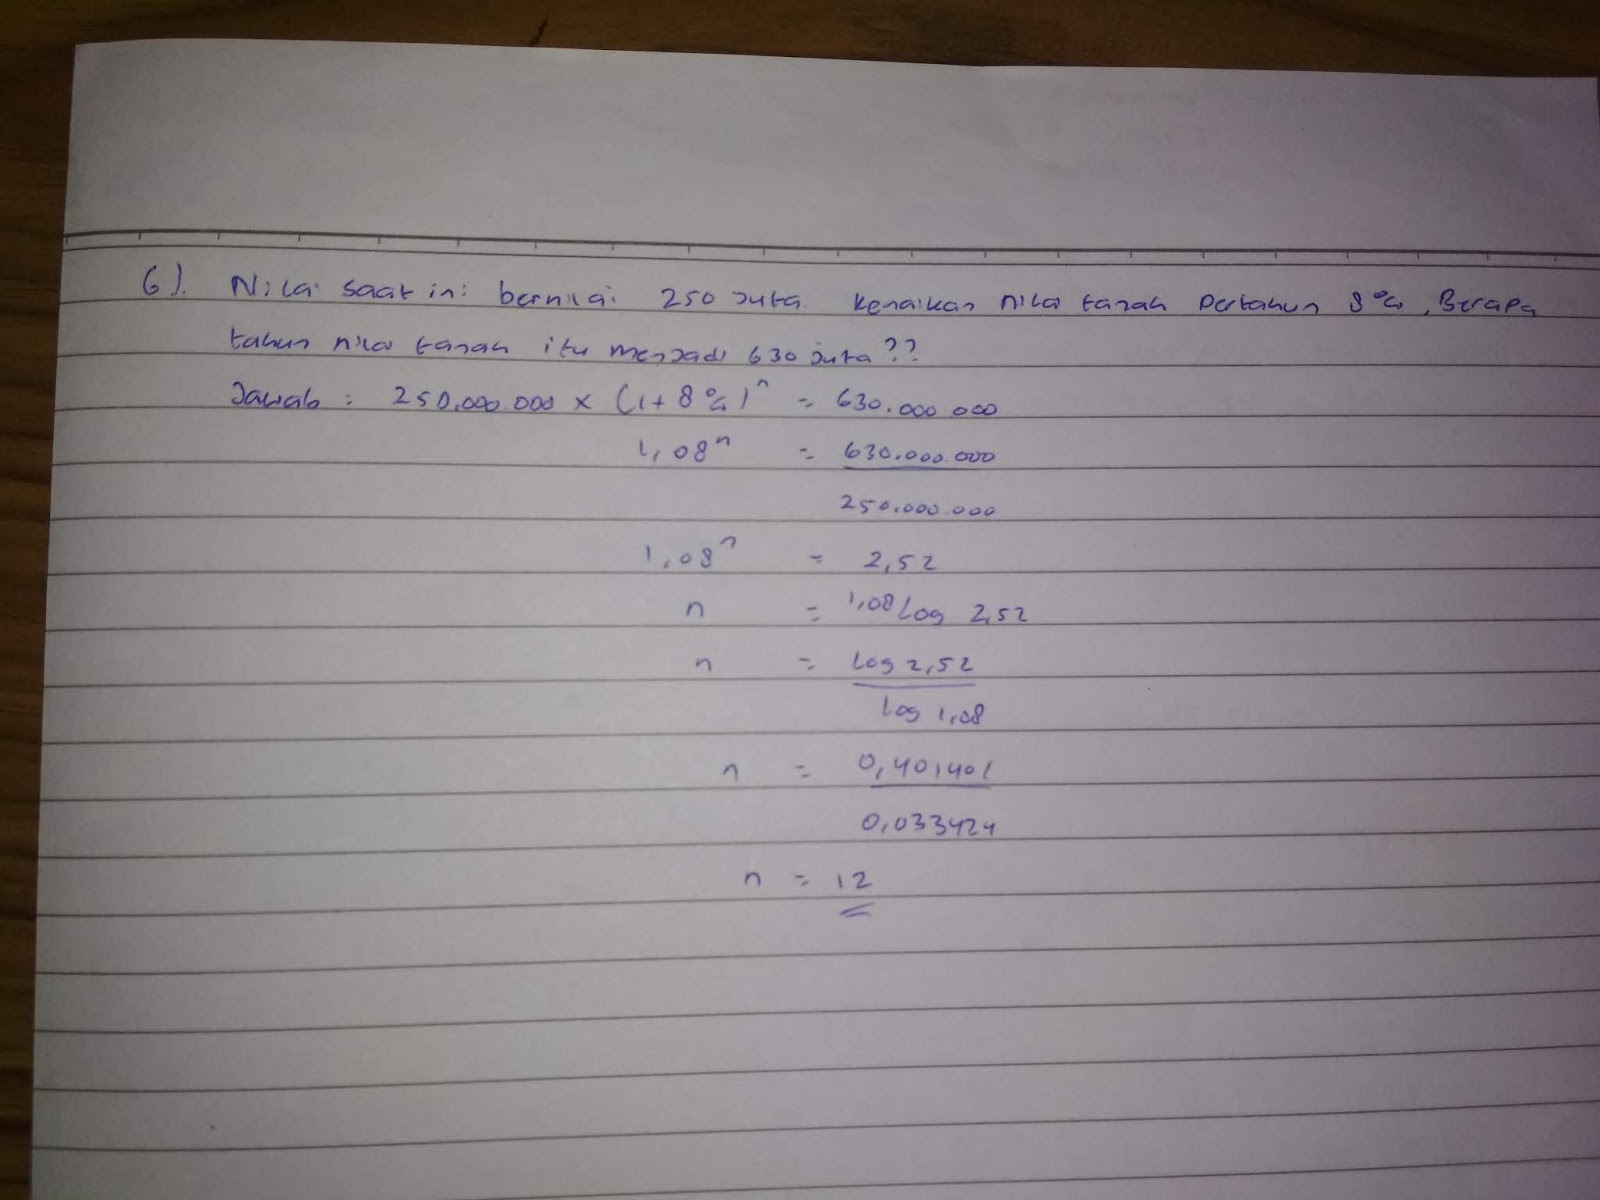 6). Nilai saat ini bernilai 250 juta. Kenaikan nilai tanah pertahun 8%, Berapa
tahun nilai tanah itu menjadi 630 juta??
Jawab : 250.000.000 × (1+8%)ⁿ = 630.000.000
1,08ⁿ = 630.000.000
250.000.000
1,08ⁿ = 2,52
n = ¹,⁰⁸log 2,52
n = log 2,52
log 1,08
n = 0,401401
0,033424
n = 12